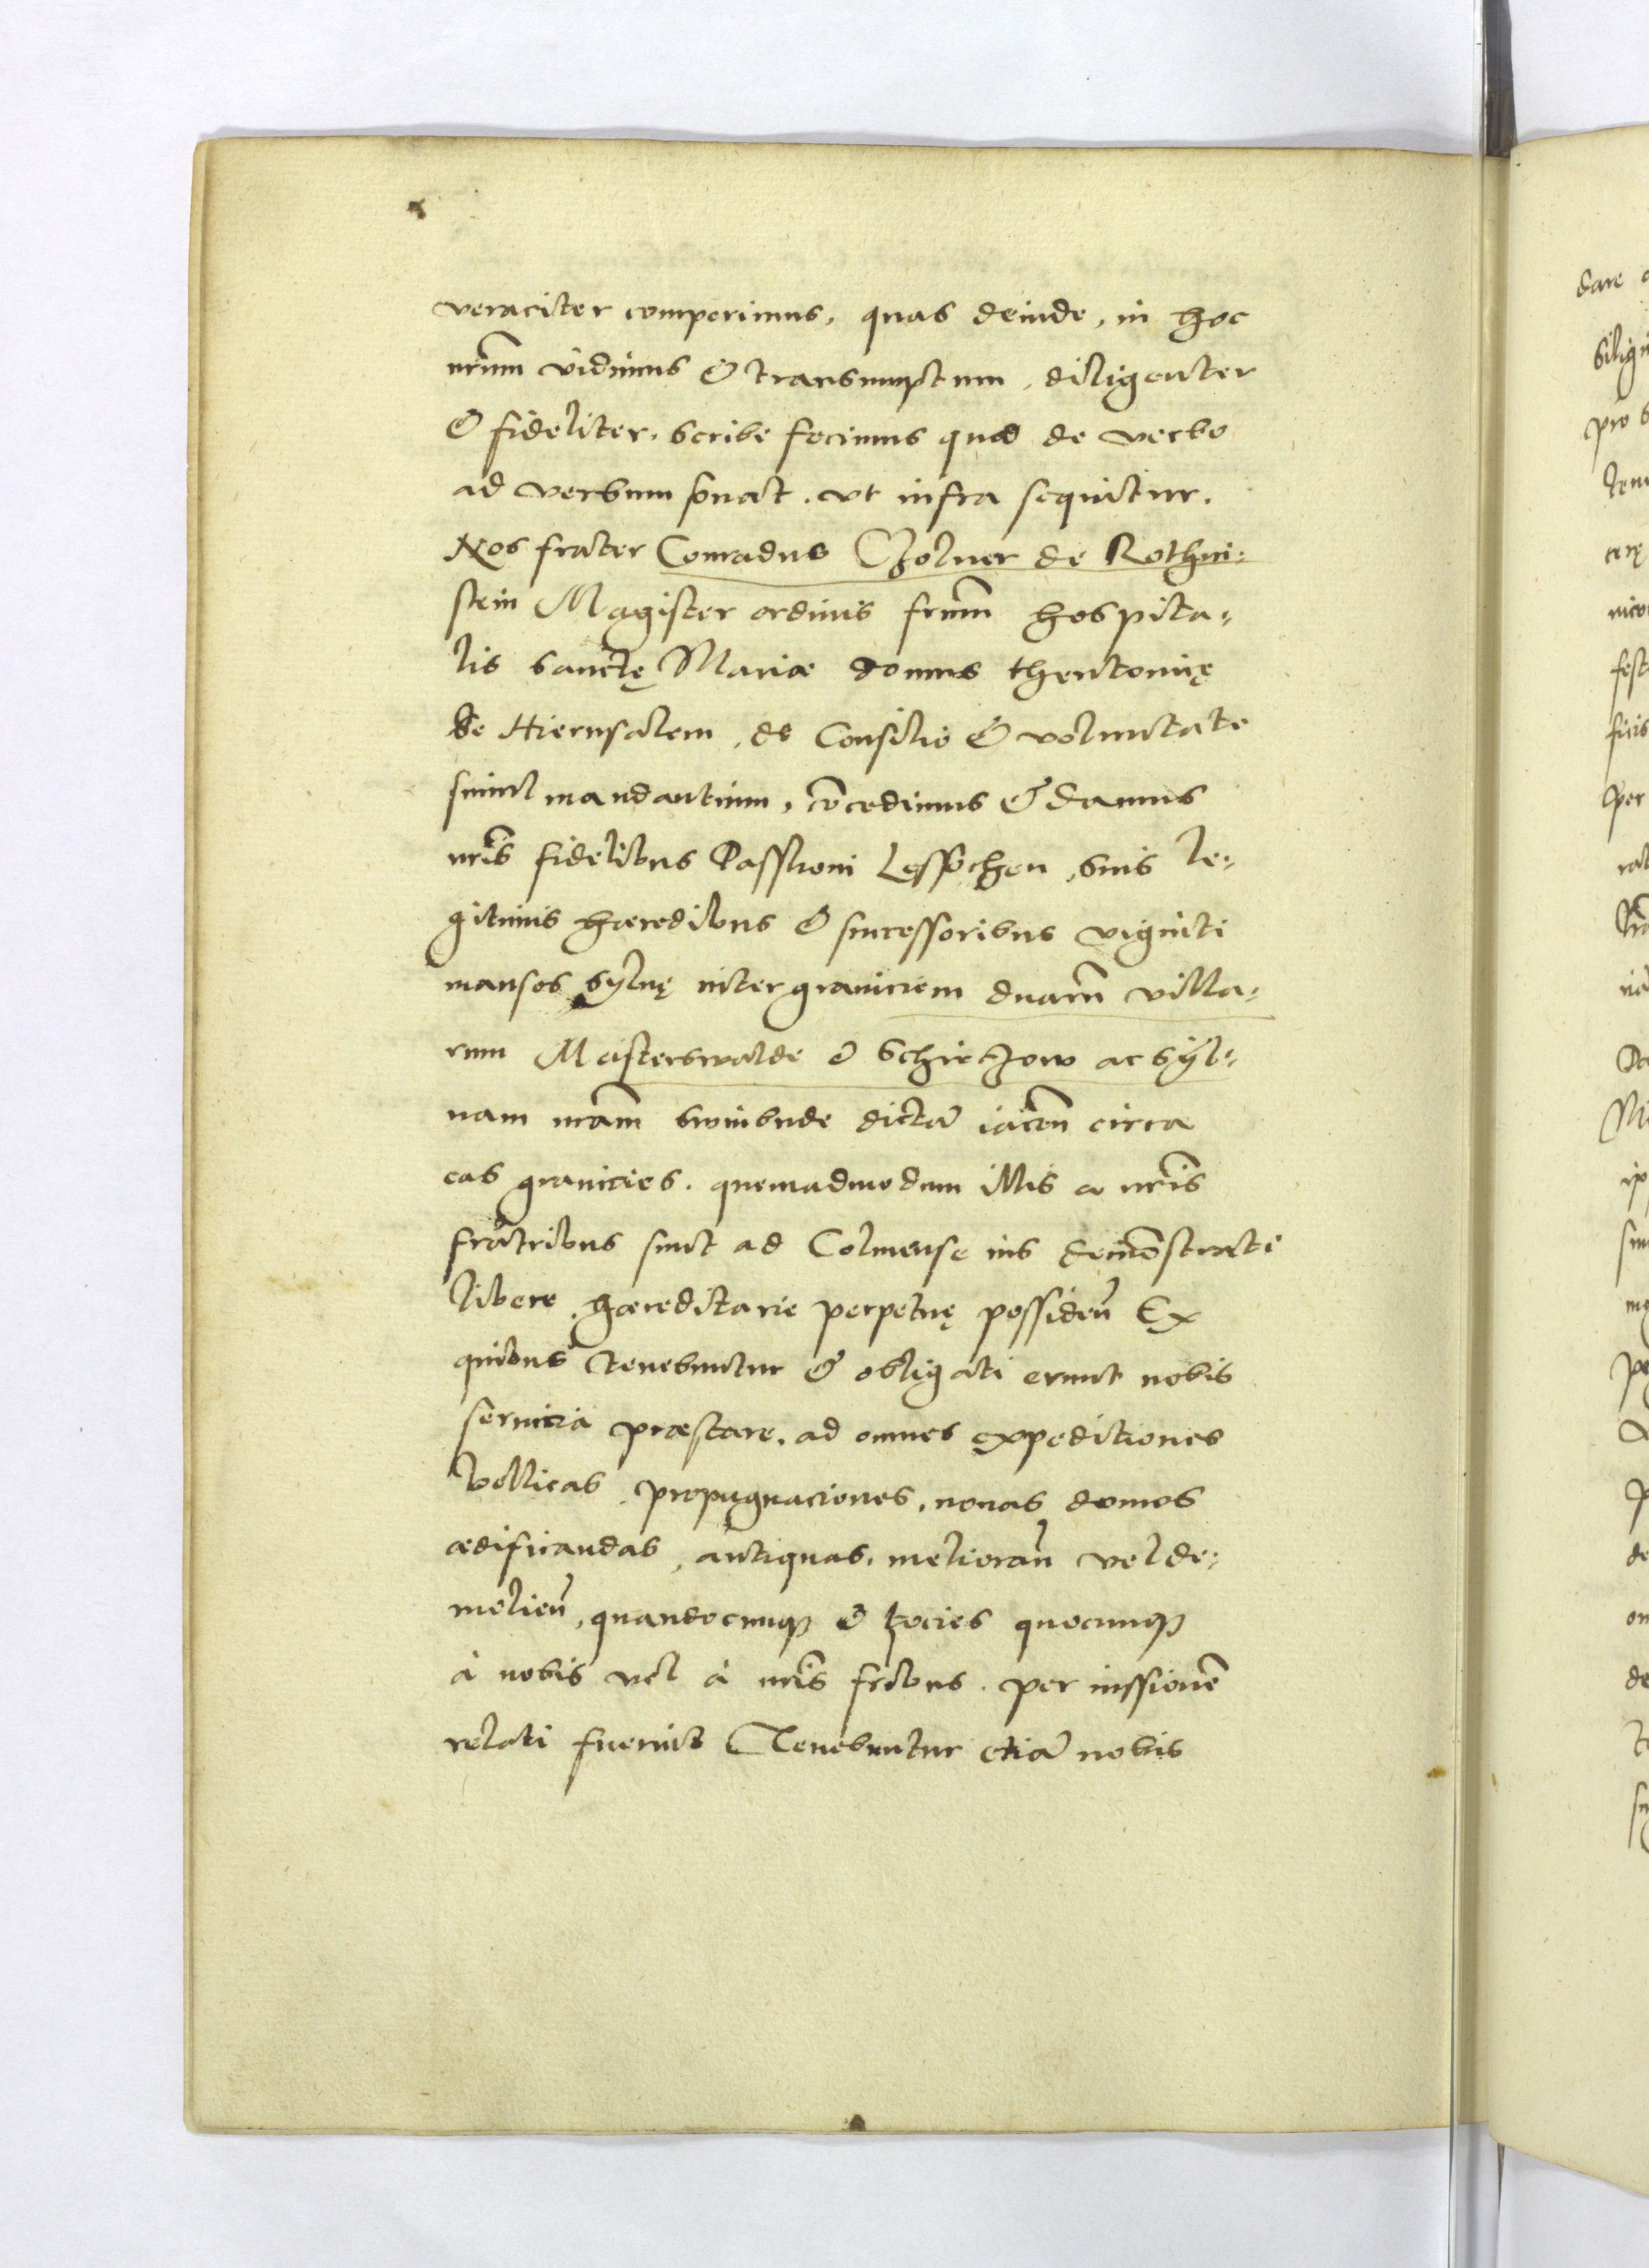 veraciter comperimus, quas deinde, in hoc
nr̃um vidimus & transumptum, diligenter
& fideliter, scribe fecimus quod de verbo
ad verbum sonat. vt infra sequitur.
Nos frater Conradus Czolner de Rothni-
stein Magister ordinis frm̃ hospita-
lis sanctę Mariæ domus theutonię
de Hierusalem, de Consilio & voluntate
simul mandantium, cõcedimus & damus
nr̃is fidelibus Passkoni Lessochen, suis le-
gitimis hæredibus & successoribus viginti
mansos sylvę inter graniciem duarũ villa-
rum Mesterswalde & Schirtzow ac syl-
uam nr̃am swinbude dictã iaceñ circa
eas granicies. quemadmodum illis a nr̃is
fratribus sunt ad Colmense ius demõstrati
libere, hæreditarie perpetuę possideñ Ex
quibus tenebuntur & obligati erunt nobis
seruicia præstare, ad omnes expeditiones
bellicas, propugnaciones, nouas domos
ædificandas, antiquas, melioranñ vel de-
molieñ, quandocunq̃ & tocies quocunq̃
à nobis vel à nr̃is frĩbus. per iussionẽ
relati fuerint Tenebuntur etiã nobis
dare
silig
pro